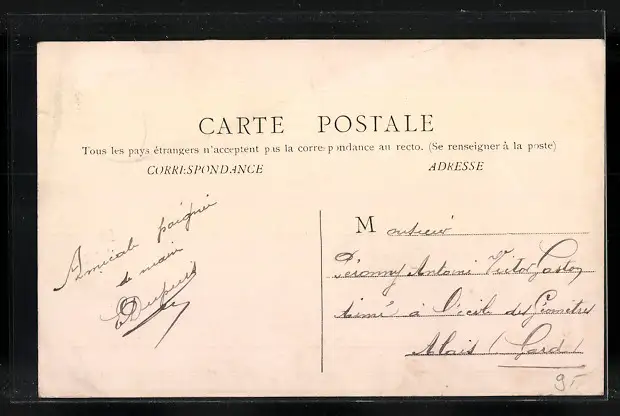 CARTE POSTALE
Tous les pays étrangers n'acceptent pas la correspondance au recto. (Se renseigner à la poste)
CORRESPONDANCE
ADRESSE
Amicale poignée
de main
Dupuis
Monsieur
Antoine Victor Gaston
à l'école des Géomètres
Alais (Gard)
9